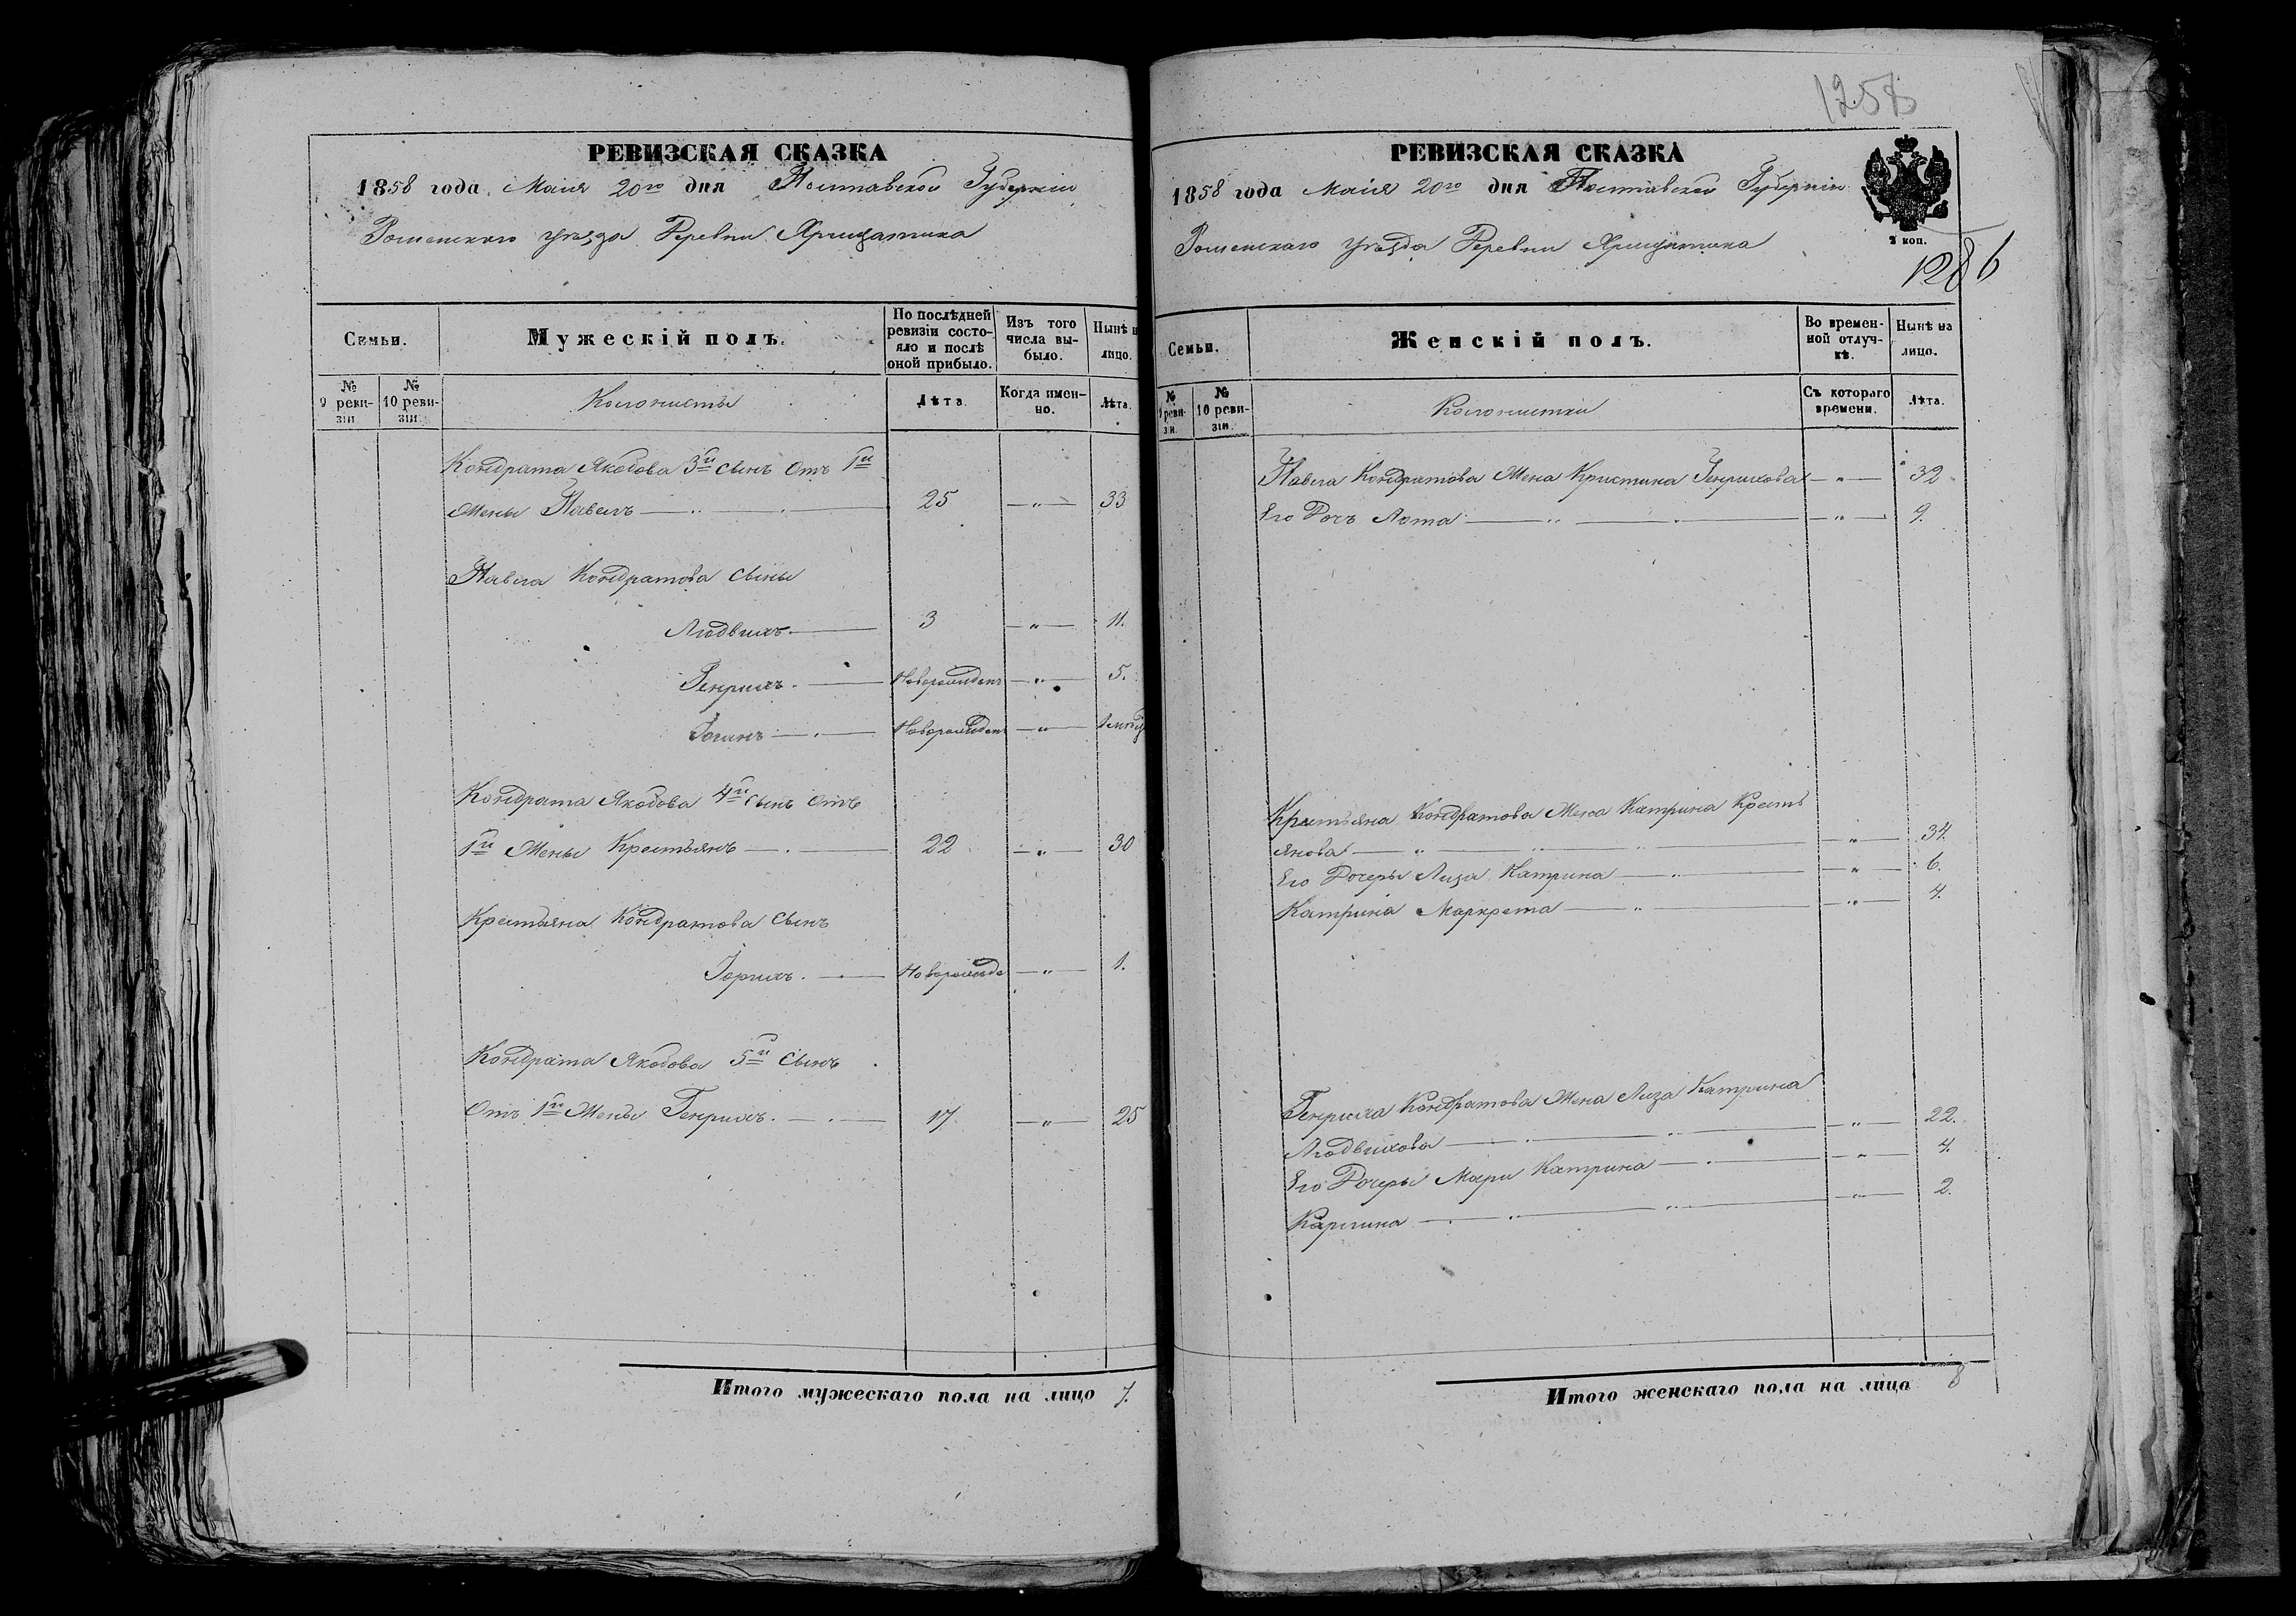 1258
РЕВИЗСКАЯ СКАЗКА
1858 года Маія 20го дня Полтавской Губерніи
Роменскаго уѣзда Деревни
1286
Семьи.
Мужескій полъ.
По послѣдней ревизіи состояло и послѣ оной прибыло.
Изъ того числа выбыло.
Нынѣ на лицо.
№ 9 ревизіи.
№ 10 ревизіи.
Колонисты
Лѣта.
Когда именно.
Лѣта.
Кондрата Якобова 3й сынъ Отъ 1й
Жены Павелъ — 25 — „ — 33
Павла Кондратова сыны
Людвихъ — 3 — „ — 11.
Генрихъ. — Новорожденъ — „ — 5.
Іоганъ — Новорожден — „ —
Кондрата Якобова 4й сынъ Отъ
1й Жены Крестьянъ — 22 — „ — 30
Крестьяна Кондратова Сынъ
— Новорожде — „ — 1.
Кондрата Якобова 5й Сынъ
Отъ 1й Жены Генрихъ. — 17. — „ — 25
Итого мужескаго пола на лицо 7.
РЕВИЗСКАЯ СКАЗКА
1858 года Маія 20го дня Полтавской Губерніи
Роменскаго уѣзда Деревни
2 коп.
Семьи.
Женскій полъ.
Во временной отлучкѣ.
Нынѣ на лицо.
№ 9 ревизіи.
№ 10 ревизіи.
Колонистки
Съ котораго времени.
Лѣта.
Павла Кондратова Жена Кристина Генрихова — „ — 32
Его Дочь Лота — „ — 9.
Крестьяна Кондратова Жена Катрина Кресть
янова — „ — 34.
Его Дочеры Лиза Катрина — „ — 6.
Катрина Маркрета — „ — 4.
Генриха Кондратова Жена Лиза Катрина
Людвихова — „ — 22.
Его Дочеры Мари Катрина — „ — 4.
Карлина — „ — 2.
Итого женскаго пола на лицо 8